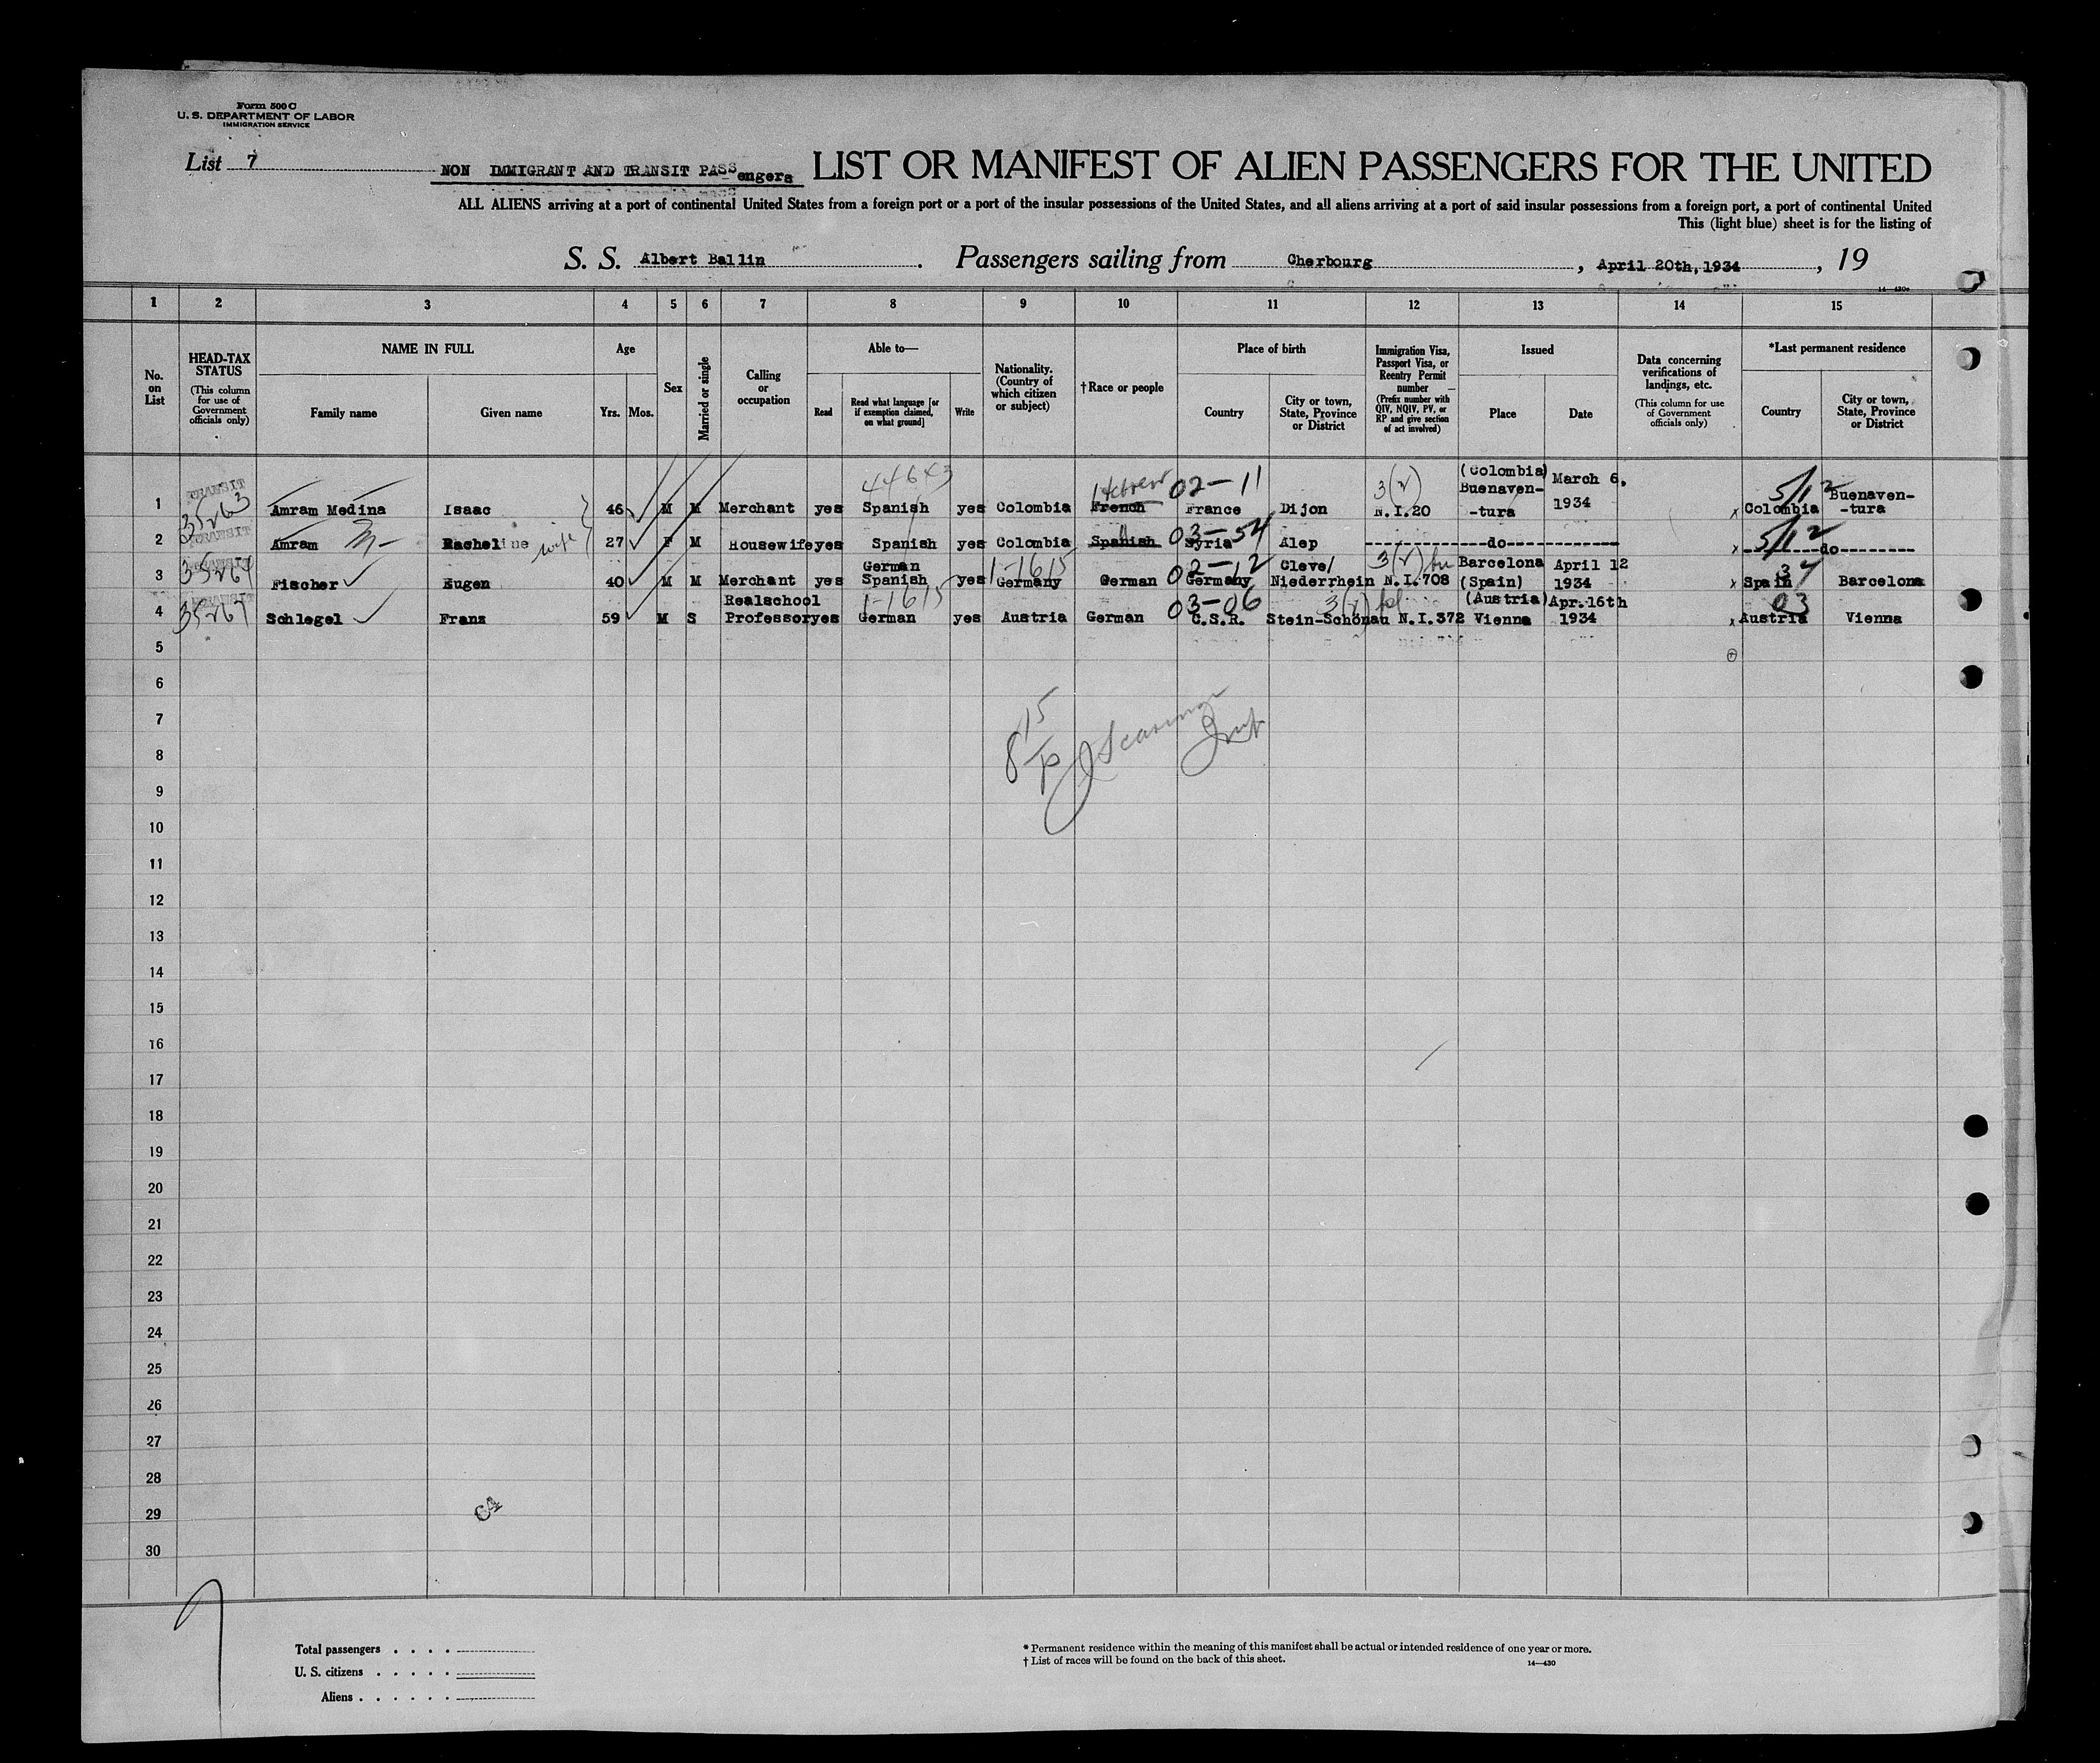 Form 500 C
U. S. DEPARTMENT OF LABOR
IMMIGRATION SERVICE
List 7
NON IMMIGRANT AND TRANSIT PASSengers LIST OR MANIFEST OF ALIEN PASSENGERS FOR THE UNITED
ALL ALIENS arriving at a port of continental United States from a foreign port or a port of the insular possessions of the United States, and all aliens arriving at a port of said insular possessions from a foreign port, a port of continental United
This (light blue) sheet is for the listing of
S. S. Albert Ballin . Passengers sailing from Cherbourg , April 20th, 1934 , 19
14—430
1 2 3 4 5 6 7 8 9 10 11 12 13 14 15
No. on List
HEAD-TAX STATUS (This column for use of Government officials only)
NAME IN FULL Family name Given name
Age Yrs. Mos.
Sex
Married or single
Calling or occupation
Able to— Read Read what language [or if exemption claimed, on what ground] Write
Nationality. (Country of which citizen or subject)
†Race or people
Place of birth Country City or town, State, Province or District
Immigration Visa, Passport Visa, or Reentry Permit number (Prefix number with QIV, NQIV, PV, or RP and give section of act involved)
Issued Place Date
Data concerning verifications of landings, etc. (This column for use of Government officials only)
*Last permanent residence Country City or town, State, Province or District
TRANSIT 44643 Hebrew 02-11 3(2) (Colombia) 5/12
1 35263 Amram Medina Isaac 46 M M Merchant yes Spanish yes Colombia French France Dijon N.I.20 Buenaven-tura March 6, 1934 x Colombia Buenaven-tura
TRANSIT wife " 03-54 5/12
2 Amram M- Racheline 27 F M Housewife yes Spanish yes Colombia Spanish Syria Alep do x do
TRANSIT 1-1615 02-12 3(2) 37
3 35264 Fischer Eugen 40 M M Merchant yes German Spanish yes Germany German Germany Cleve/ Niederrhein N.I.708 Barcelona (Spain) April 12 1934 x Spain Barcelona
TRANSIT 1-1615 03-06 3(2) 03
4 35267 Schlegel Franz 59 M S Realschool Professor yes German yes Austria German C.S.R. Stein-Schönau N.I.372 (Austria) Vienna Apr.16th 1934 x Austria Vienna
5
6
7
8
9
10
11
12
13
14
15
16
17
18
19
20
21
22
23
24
25
26
27
28
29
64
30
Total passengers . . . .
U. S. citizens . . . . .
Aliens . . . . . .
* Permanent residence within the meaning of this manifest shall be actual or intended residence of one year or more.
† List of races will be found on the back of this sheet.
14—430